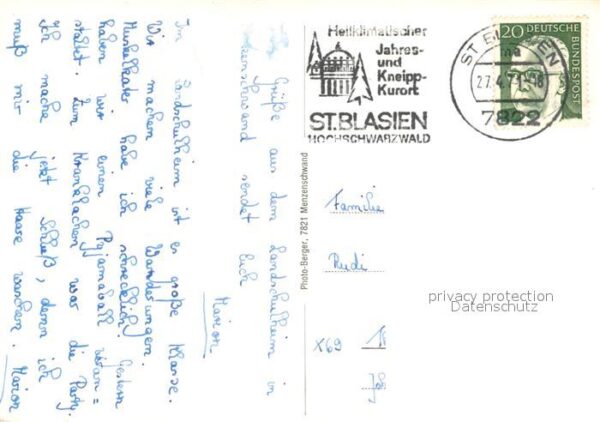 Grüße aus dem Landschulheim in
Menzenschwand sendet Euch
Marion
Im Landschulheim ist es große Klasse.
Wir machen viele Wanderungen.
Muskelkater habe ich schrecklich. Gestern
haben wir einen Pyjamaball veran=
staltet. Zum Kranklachen war die Party.
Ich mache jetzt Schluß, denn ich
muß mir die Haare waschen. Marion
Photo-Berger, 7821 Menzenschwand
Heilklimatischer
Jahres-
und
Kneipp-
Kurort
ST.BLASIEN
HOCHSCHWARZWALD
ST BLASIEN
27.4.71-18
7822
20
DEUTSCHE
BUNDESPOST
Familie
Rudi
privacy protection
Datenschutz
X69